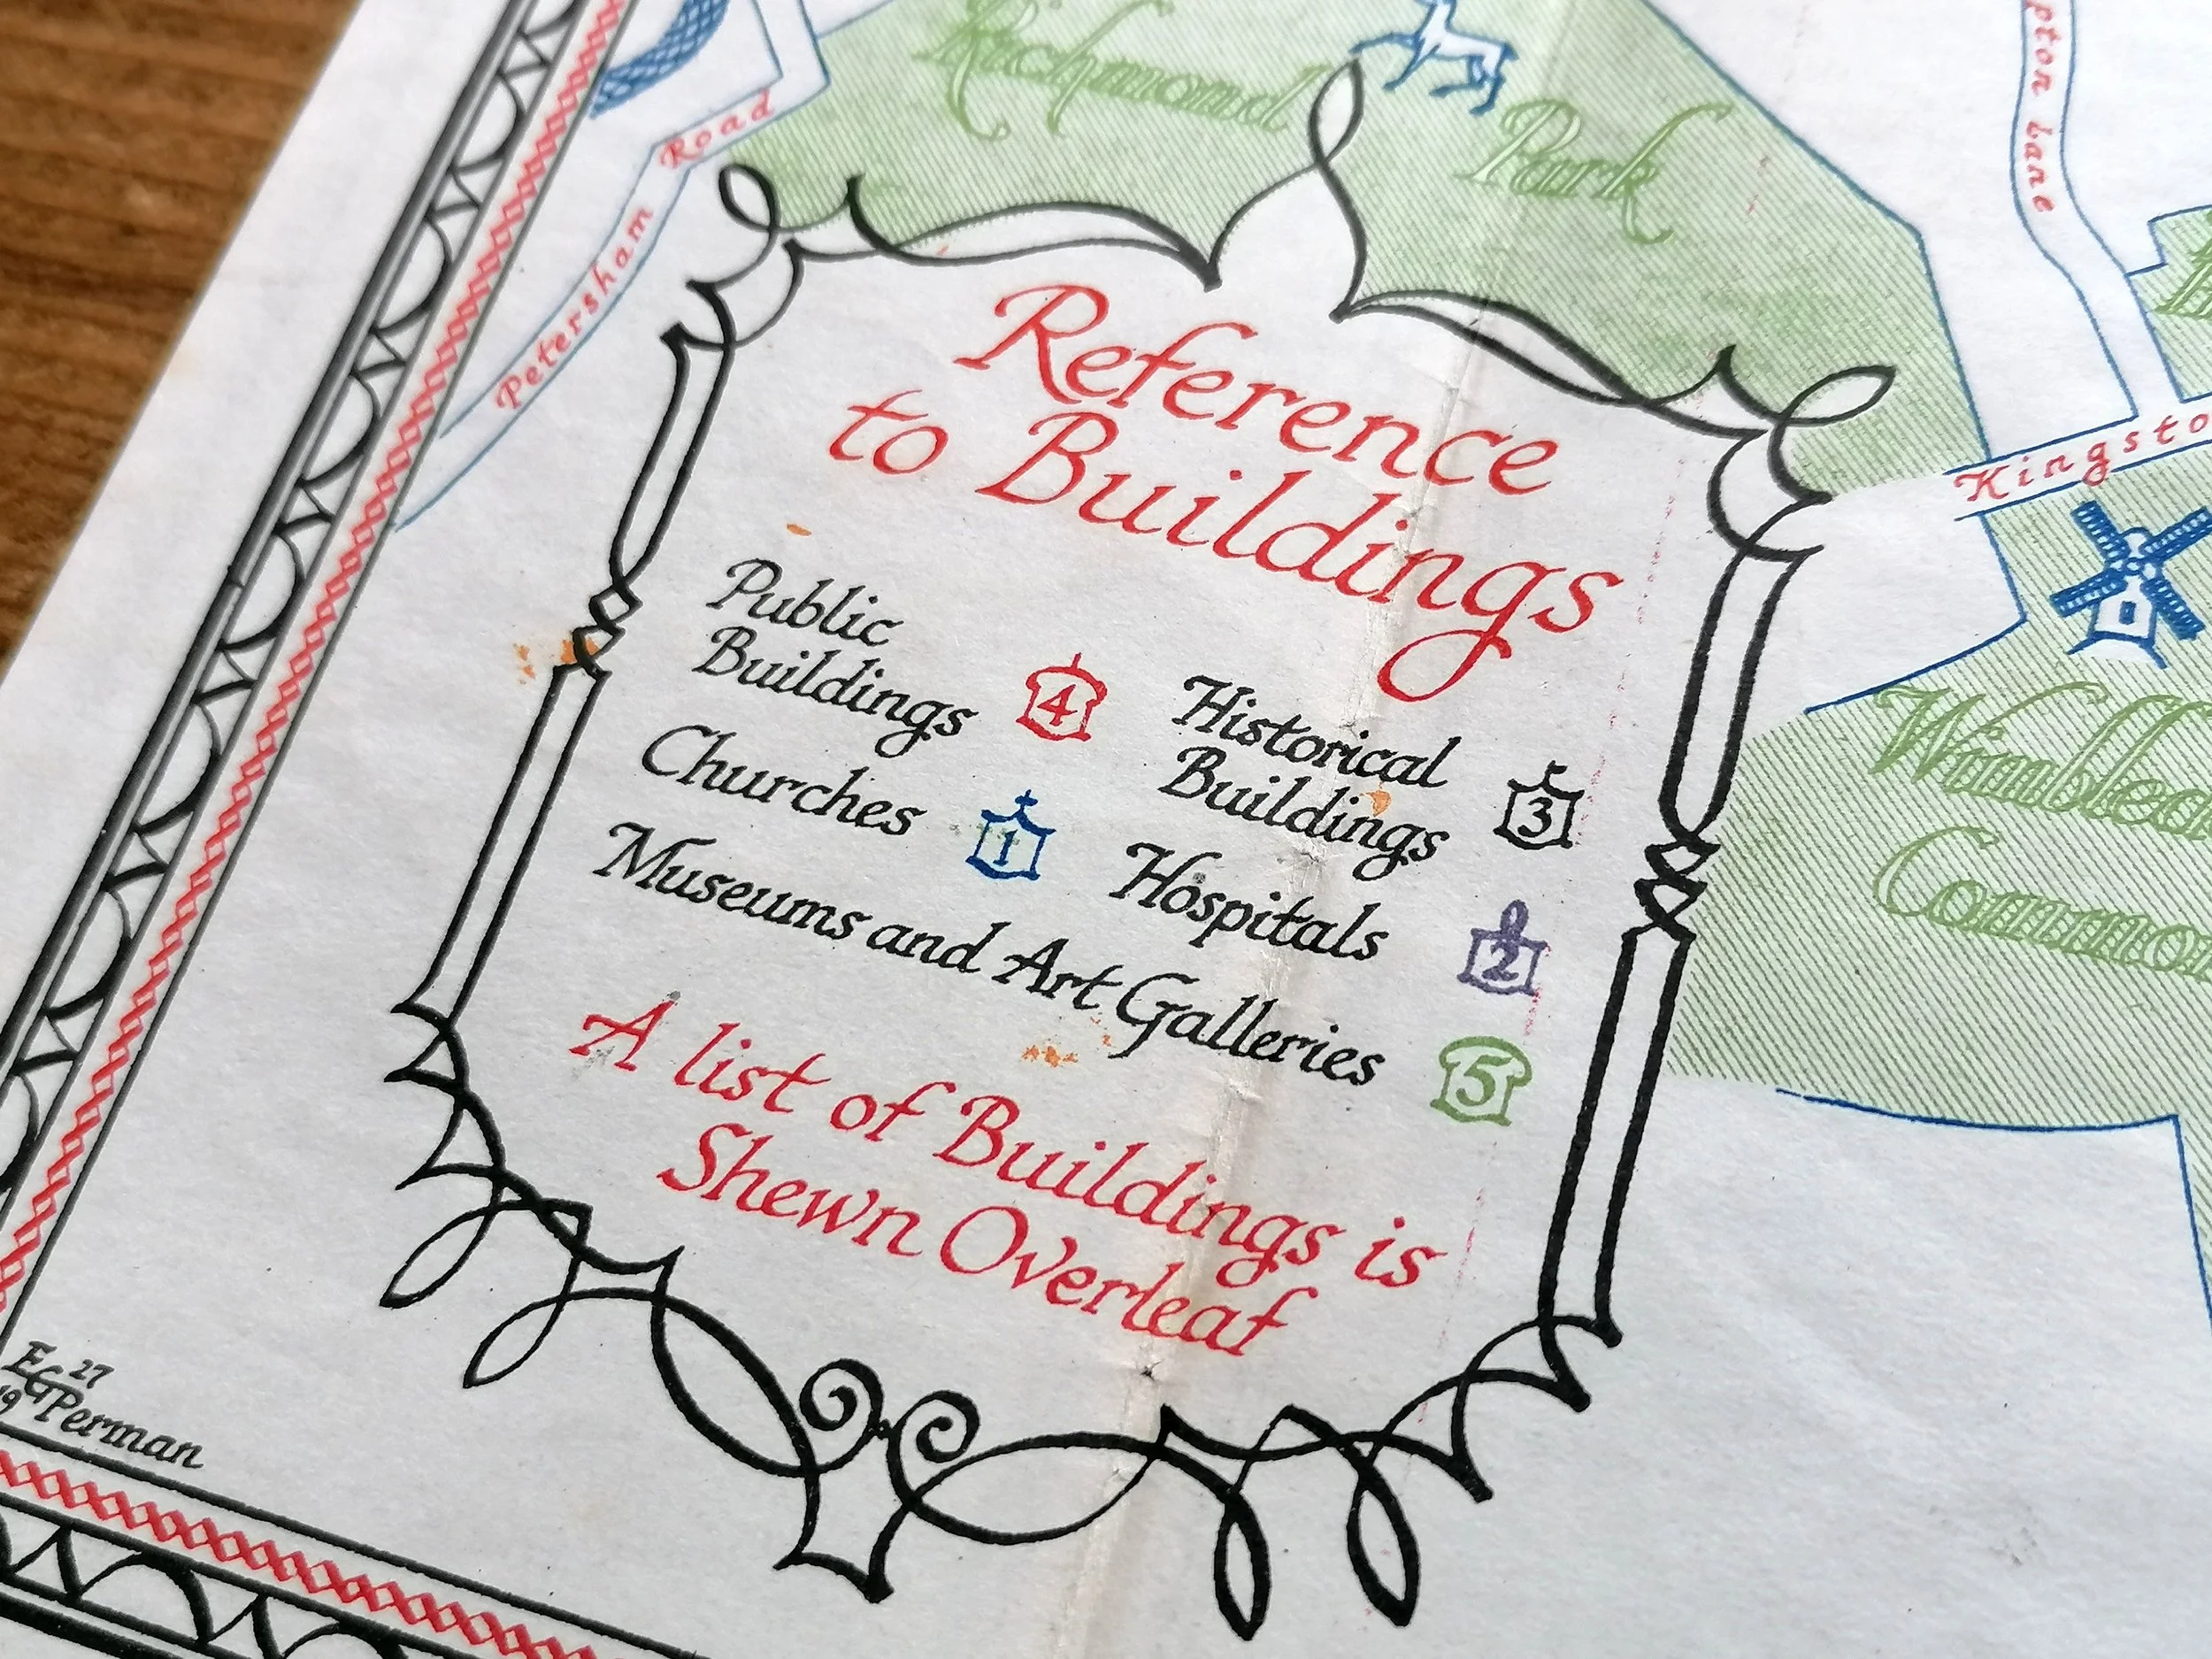 Richmond
Park
Road
Petersham
pton Lane
Kingsto
Reference
to Buildings
Public
Buildings 4
Historical
Buildings 3
Churches 1
Hospitals 2
Museums and Art Galleries 5
A list of Buildings is
Shewn Overleaf
Common
27
EGPerman
19